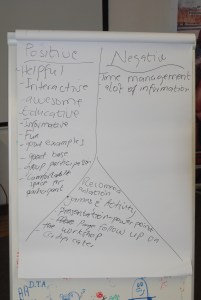 Positive
Helpful
- Interactive
- awesome
Educative
- Informative
- Fun
- good examples
- good time
- participation
- Comfortable
space for
participant
Negative
- Time management
- alot of information
Recomme
ndation
- Activity
- Presentation - power point
- follow up on
the workshop